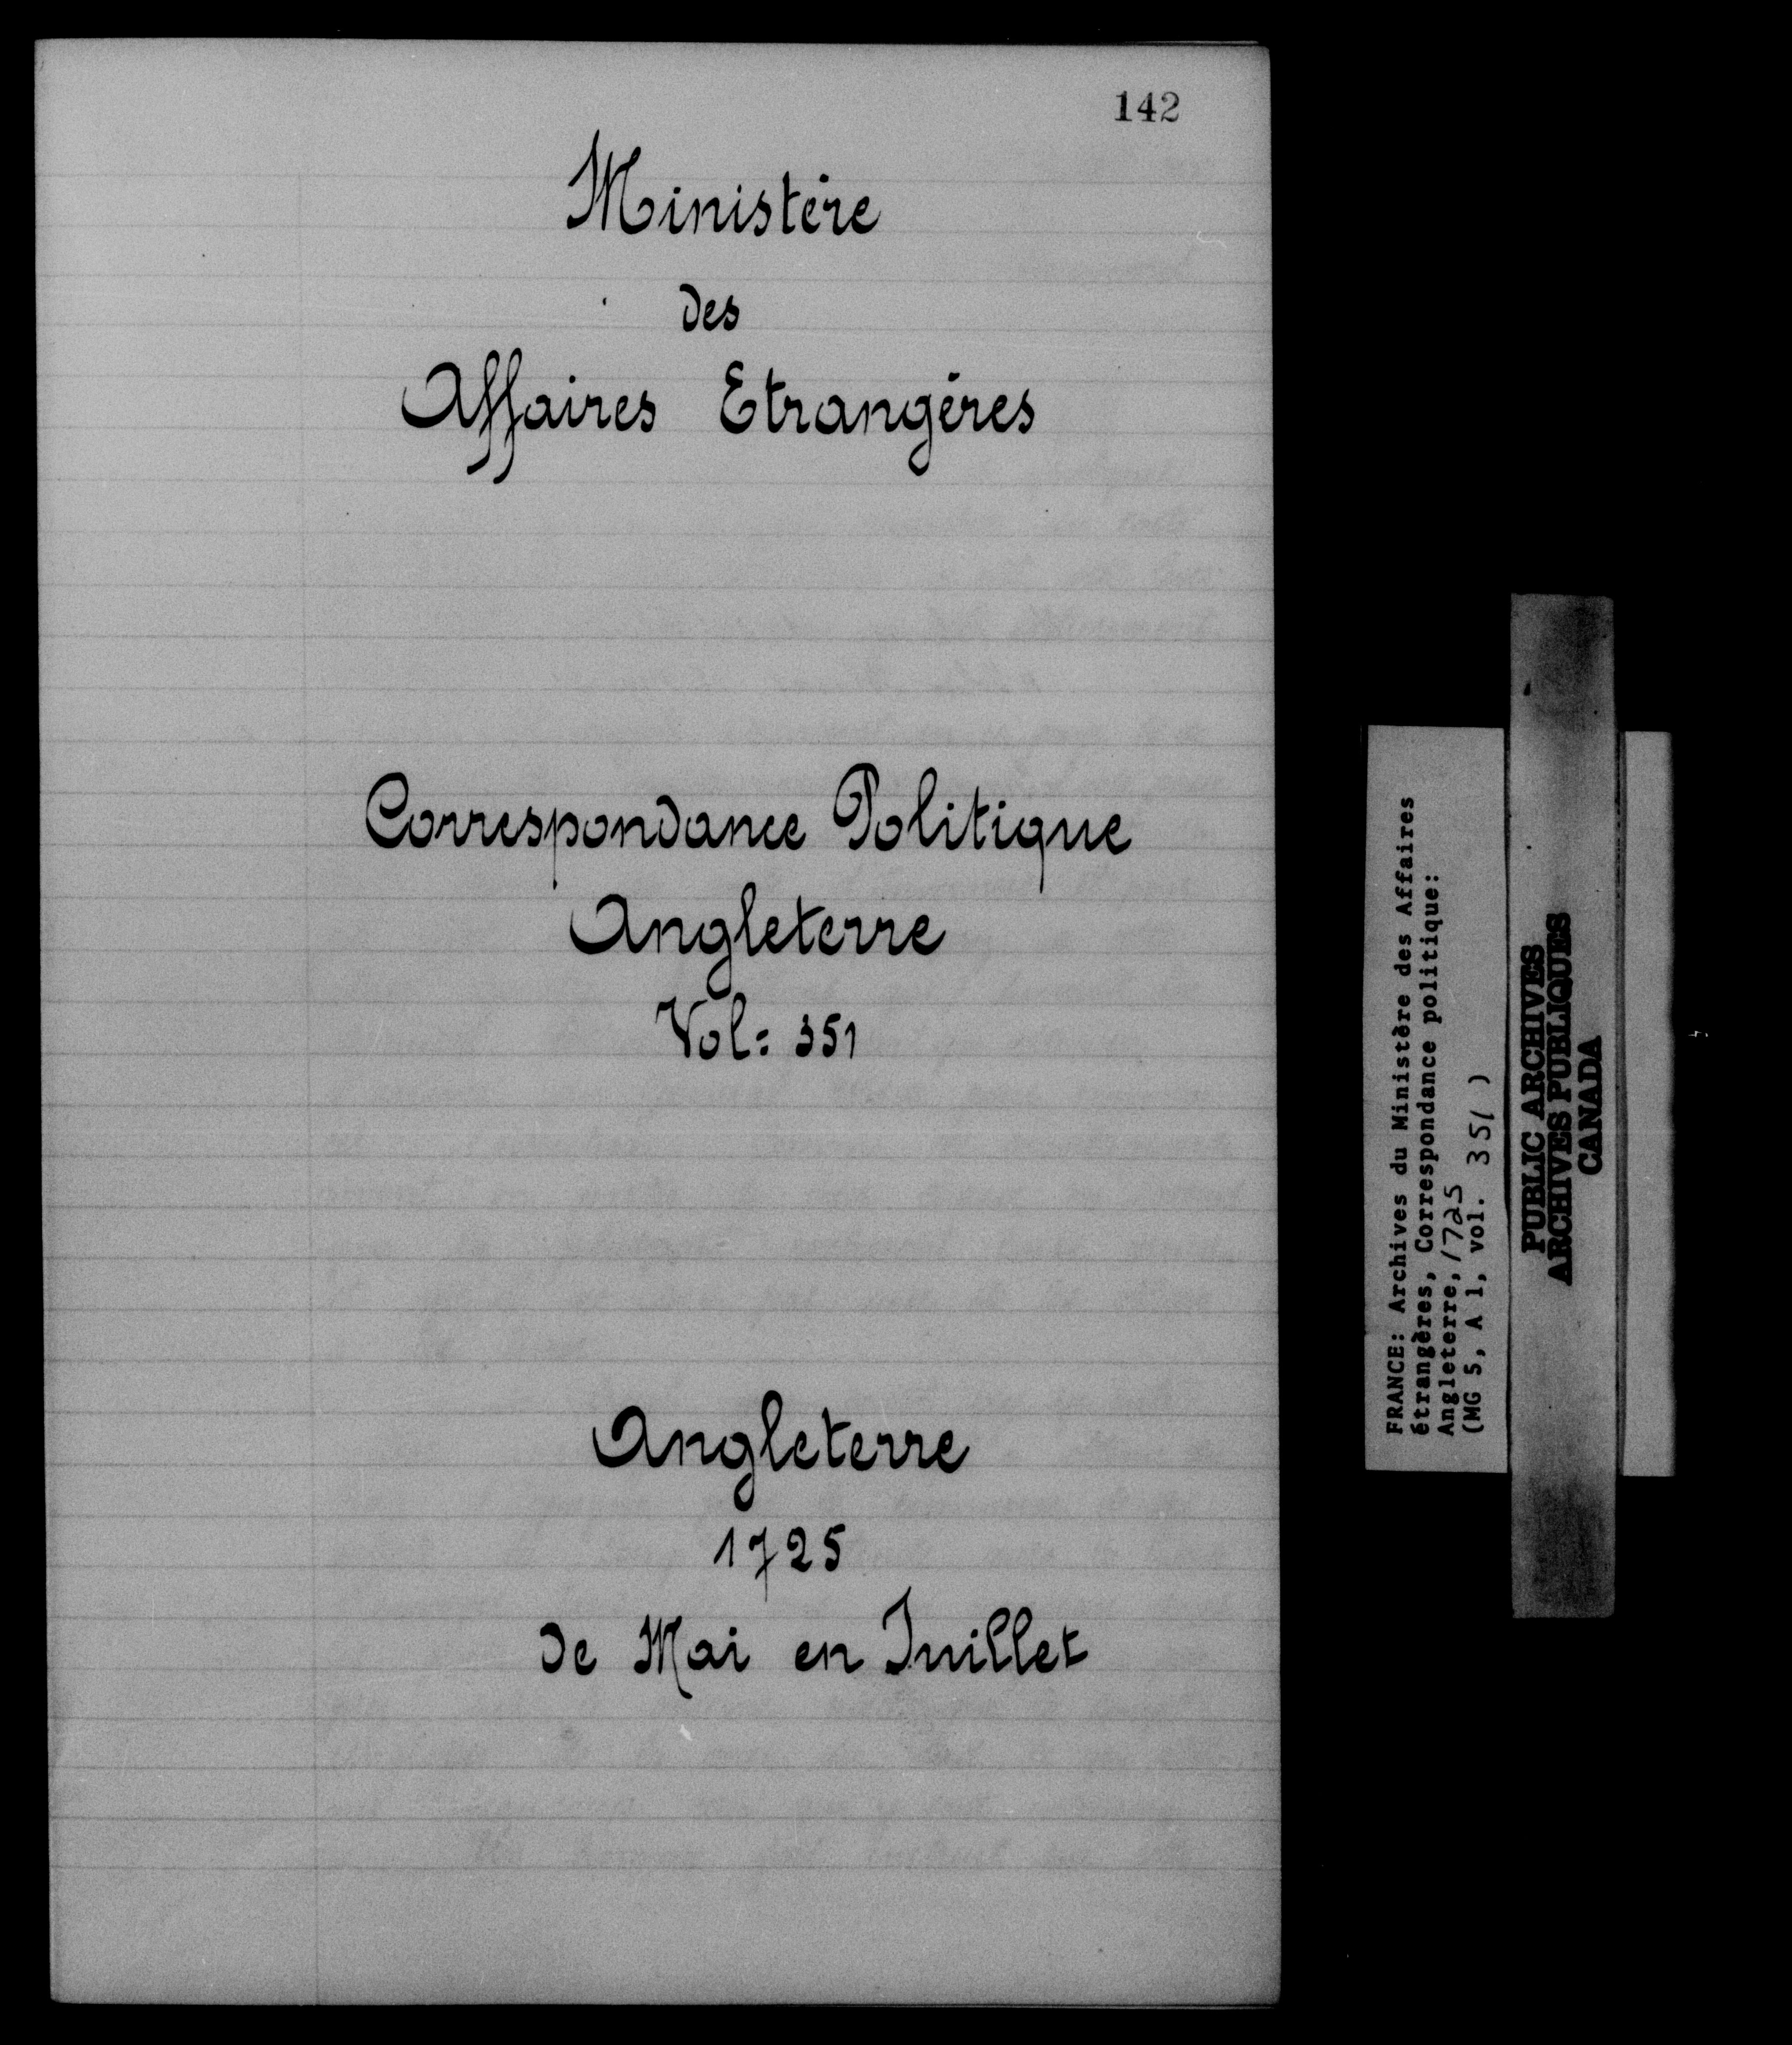 142
Ministère
des
Affaires Etrangères
Correspondance Politique
Angleterre
Vol: 351
Angleterre
1725
de Mai en Juillet
FRANCE: Archives du Ministère des Affaires
étrangères, Correspondance politique:
Angleterre, 1725
(MG 5, A 1, vol. 351 )
PUBLIC ARCHIVES
ARCHIVES PUBLIQUES
CANADA